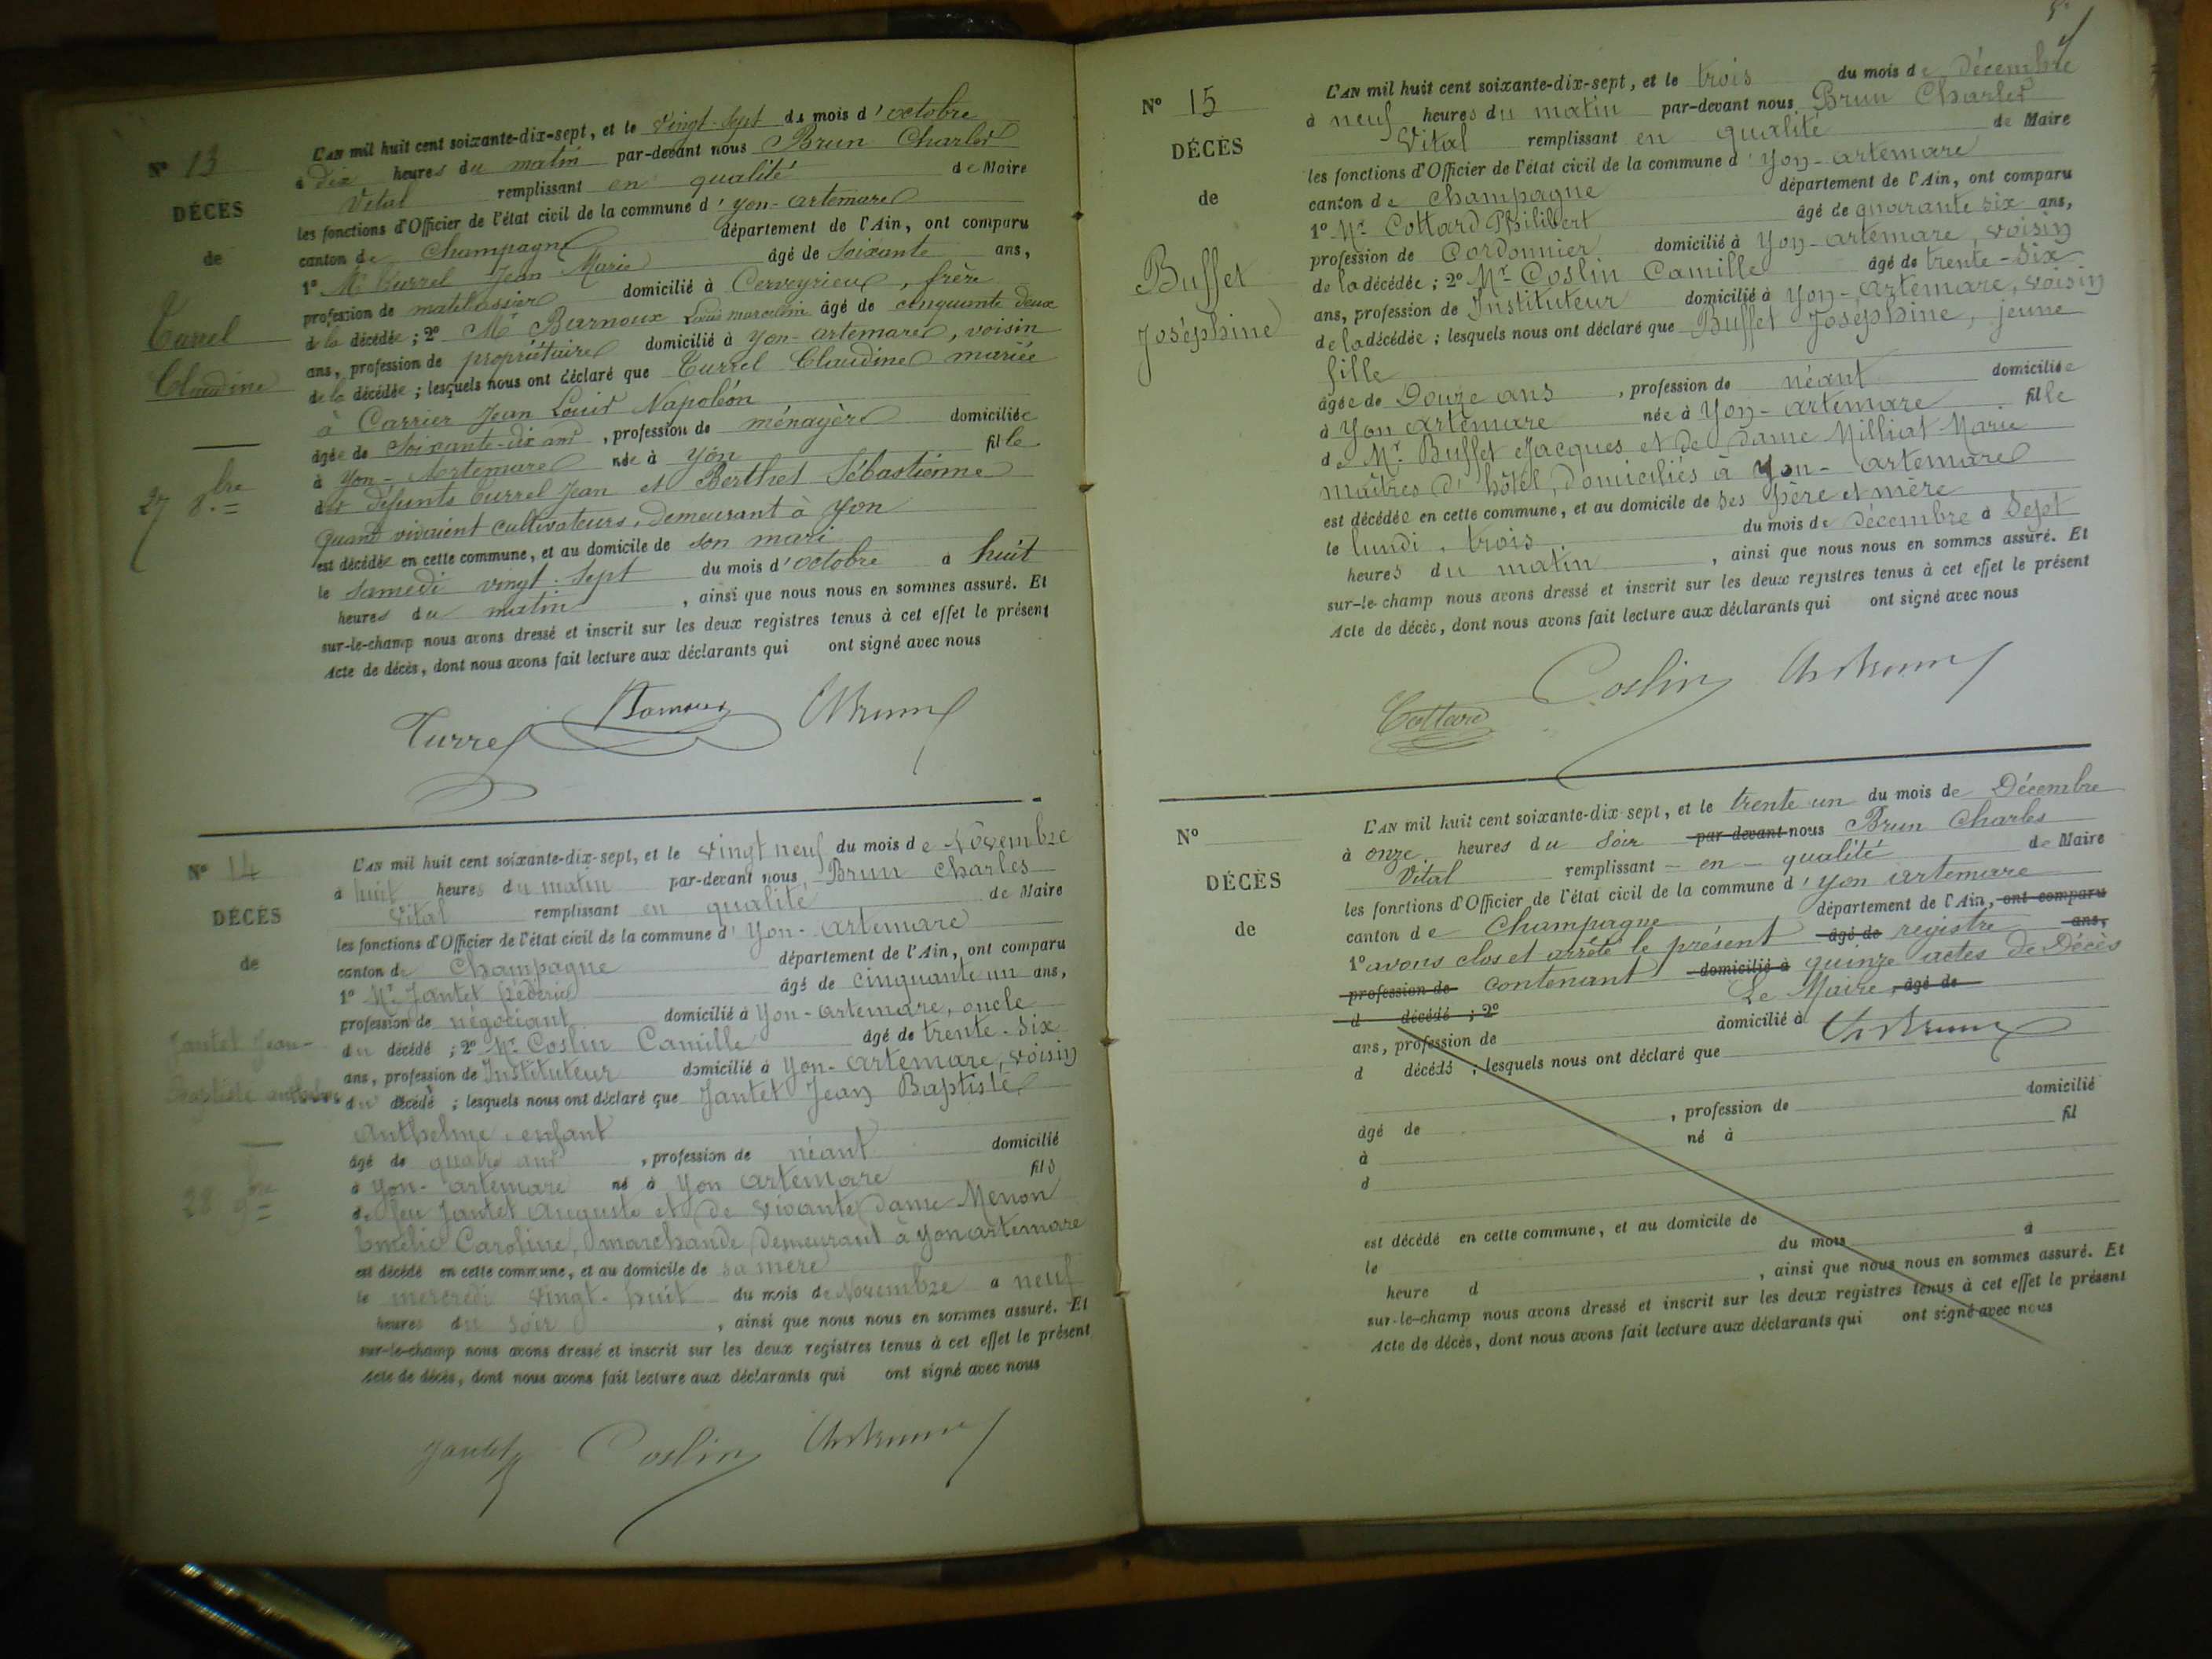 N° 13
DÉCÈS
de
Turrel
Claudine
27 8.bre
L'AN mil huit cent soixante-dix-sept, et le vingt-sept du mois d'octobre
à dix heures du matin par-devant nous Brun Charles
Vital remplissant en qualité de Maire
les fonctions d'Officier de l'état civil de la commune d'yon-artemare
canton de Champagne département de l'Ain, ont comparu
1° Mr Turrel Jean Marie âgé de soixante ans,
profession de matelassier domicilié à Cerveyrieu, frère
de la décédée ; 2° Mr Burnoux Louis marcelin âgé de cinquante deux
ans, profession de propriétaire domicilié à yon-artemare, voisin
de la décédée ; lesquels nous ont déclaré que Turrel Claudine mariée
à Carrier Jean Louis Napoléon
âgée de soixante-dix ans, profession de ménagère domiciliée
à Yon-Artemare née à yon fille
des défunts Turrel Jean et Berthet Sébastienne
quand vivaient cultivateurs, demeurant à yon
est décédée en cette commune, et au domicile de son mari
le samedi vingt-sept du mois d'octobre à huit
heures du matin, ainsi que nous nous en sommes assuré. Et
sur-le-champ nous avons dressé et inscrit sur les deux registres tenus à cet effet le présent
Acte de décès, dont nous avons fait lecture aux déclarants qui ont signé avec nous
Turrel ChBrun
N° 14
DÉCÈS
de
Jantet Jean-
Baptiste anthelme
28 9bre
L'AN mil huit cent soixante-dix-sept, et le vingt neuf du mois de Novembre
à huit heures du matin par-devant nous Brun Charles
Vital remplissant en qualité de Maire
les fonctions d'Officier de l'état civil de la commune d'Yon-artemare
canton de Champagne département de l'Ain, ont comparu
1° Mr Jantet fréderic âgé de cinquante un ans,
profession de négociant domicilié à Yon-artemare, oncle
du décédé ; 2° Mr Coslin Camille âgé de trente-six
ans, profession de Instituteur domicilié à Yon-artemare, voisin
du décédé ; lesquels nous ont déclaré que Jantet Jean Baptiste
Anthelme, enfant
âgé de quatre ans, profession de néant domicilié
à Yon-artemare né à Yon artemare fils
de feu Jantet Auguste et de vivante dame Menon
Emélie Caroline, marchande, demeurant à yon artemare
est décédé en cette commune, et au domicile de sa mère
le mercredi vingt-huit du mois de Novembre à neuf
heures du soir, ainsi que nous nous en sommes assuré. Et
sur-le-champ nous avons dressé et inscrit sur les deux registres tenus à cet effet le présent
Acte de décès, dont nous avons fait lecture aux déclarants qui ont signé avec nous
Jantet Coslin ChBrun
N° 15
DÉCÈS
de
Buffet
Joséphine
L'AN mil huit cent soixante-dix-sept, et le trois du mois de Décembre
à neuf heures du matin par-devant nous Brun Charles
Vital remplissant en qualité de Maire
les fonctions d'Officier de l'état civil de la commune d'Yon-artemare
canton de Champagne département de l'Ain, ont comparu
1° Mr Cottard Philibert âgé de quarante six ans,
profession de Cordonnier domicilié à Yon-artemare, voisin
de la décédée ; 2° Mr Coslin Camille âgé de trente-six
ans, profession de Instituteur domicilié à Yon-artemare, voisin
de la décédée ; lesquels nous ont déclaré que Buffet Joséphine, jeune
fille
âgée de Douze ans, profession de néant domiciliée
à Yon artemare née à Yon-artemare fille
de Mr Buffet Jacques et de dame Milliat Marie
maîtres d'hôtel, domiciliés à Yon-artemare
est décédée en cette commune, et au domicile de ses père et mère
le lundi, trois du mois de décembre à Sept
heures du matin, ainsi que nous nous en sommes assuré. Et
sur-le-champ nous avons dressé et inscrit sur les deux registres tenus à cet effet le présent
Acte de décès, dont nous avons fait lecture aux déclarants qui ont signé avec nous
Cottard Coslin ChBrun
N°
DÉCÈS
de
L'AN mil huit cent soixante-dix-sept, et le trente un du mois de Décembre
à onze heures du soir par-devant nous Brun Charles
Vital remplissant - en - qualité de Maire
les fonctions d'Officier de l'état civil de la commune d'yon artemare
canton de Champagne département de l'Ain, ont comparu
1° avons clos et arrêté le présent âgé de registre ans,
profession de contenant domicilié à quinze actes de Décès
d décédé ; 2° Le Maire, âgé de
ans, profession de domicilié à ChBrun
d décédé ; lesquels nous ont déclaré que
âgé de , profession de domicilié
à né à fil
d
est décédé en cette commune, et au domicile de
le du mois à
heure d , ainsi que nous nous en sommes assuré. Et
sur-le-champ nous avons dressé et inscrit sur les deux registres tenus à cet effet le présent
Acte de décès, dont nous avons fait lecture aux déclarants qui ont signé avec nous